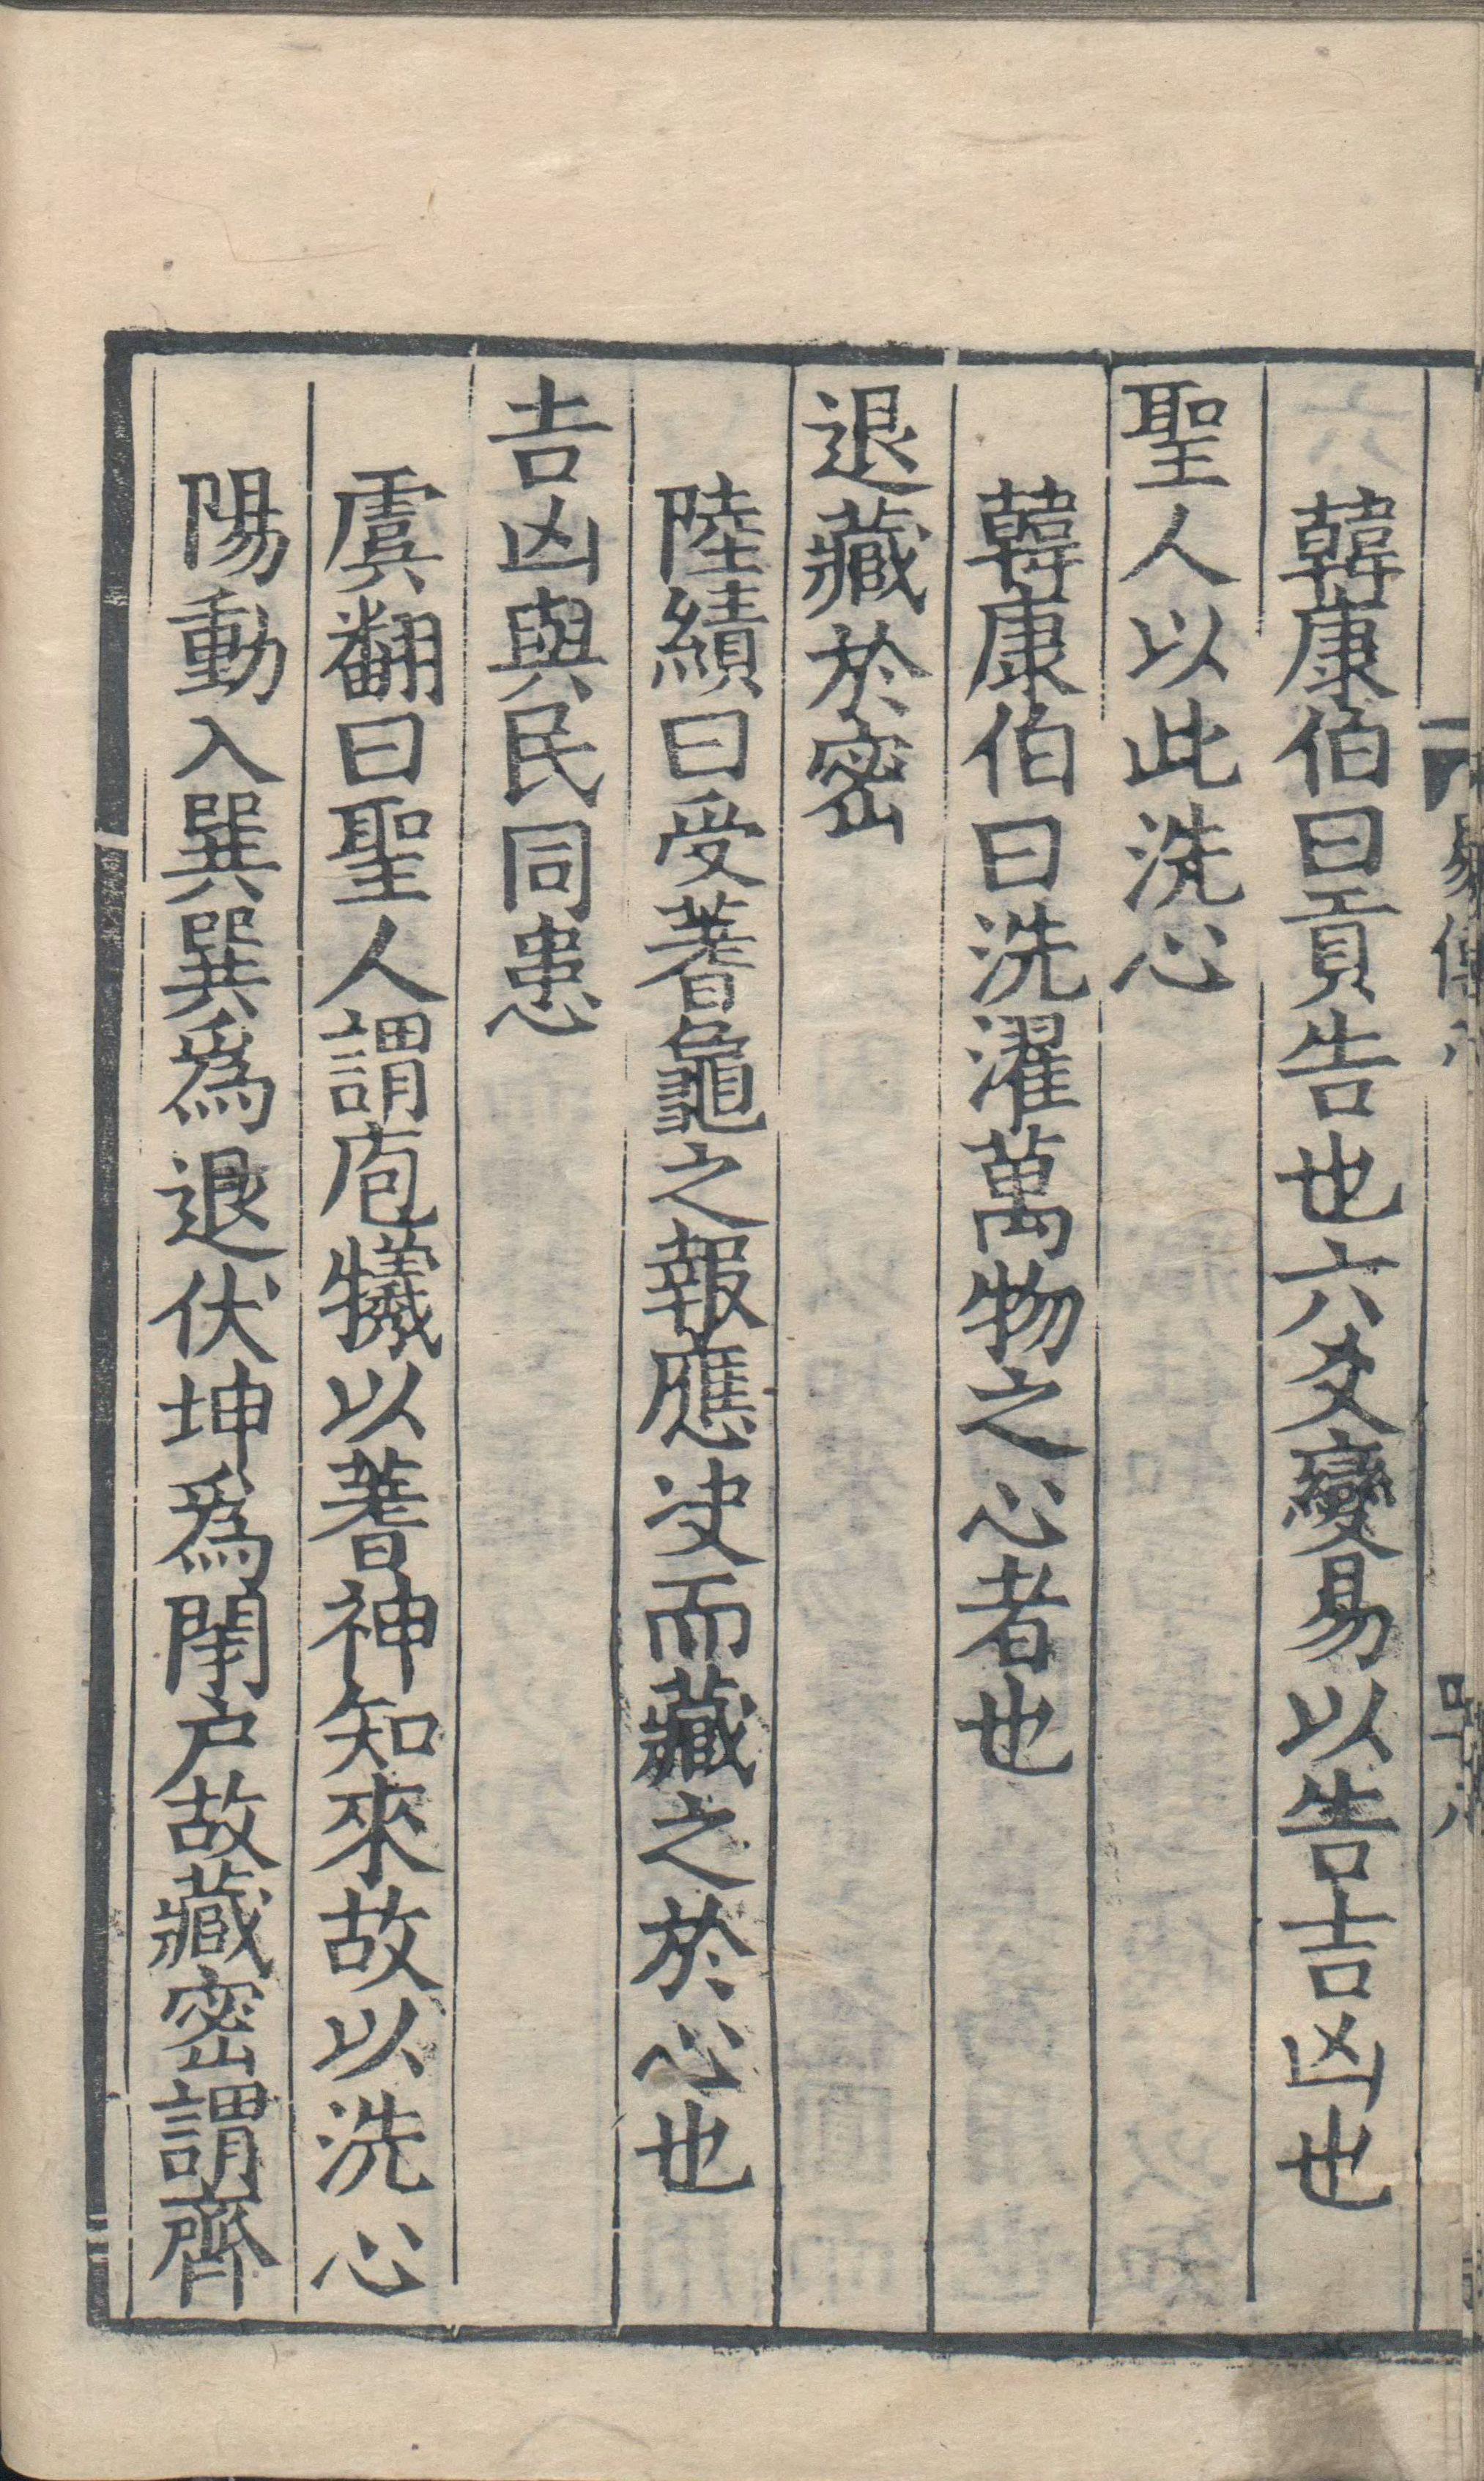 韓康伯曰貢告也六爻變易以告吉凶也
聖人以此洗心
韓康伯曰洗濯萬物之心者也
退藏於密
陸績曰受蓍龜之報應決而藏之於心也
吉凶與民同患
虞翻曰聖人謂庖犧以蓍神知來故以洗心
陽動入巽巽為退伏坤為閑户故藏密謂齊